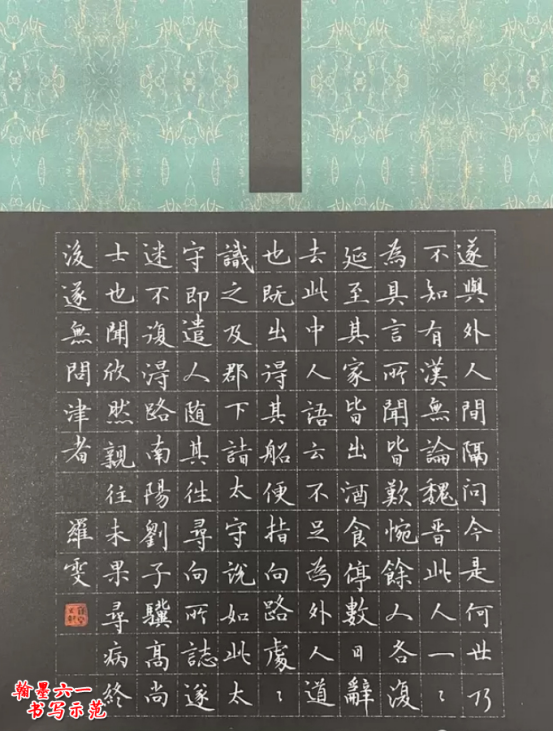 遂與外人間隔問今是何世乃
不知有漢無論魏晉此人一〻
為具言所聞皆歎惋餘人各復
延至其家皆出酒食停數日辭
去此中人語云不足為外人道
也既出得其船便指向路處〻
識之及郡下詣太守說如此太
守即遣人随其往尋向所誌遂
迷不復得路南陽劉子驥高尚
士也聞欣然親往未果尋病終
後遂無問津者 羅雯
翰墨六一
书写示范